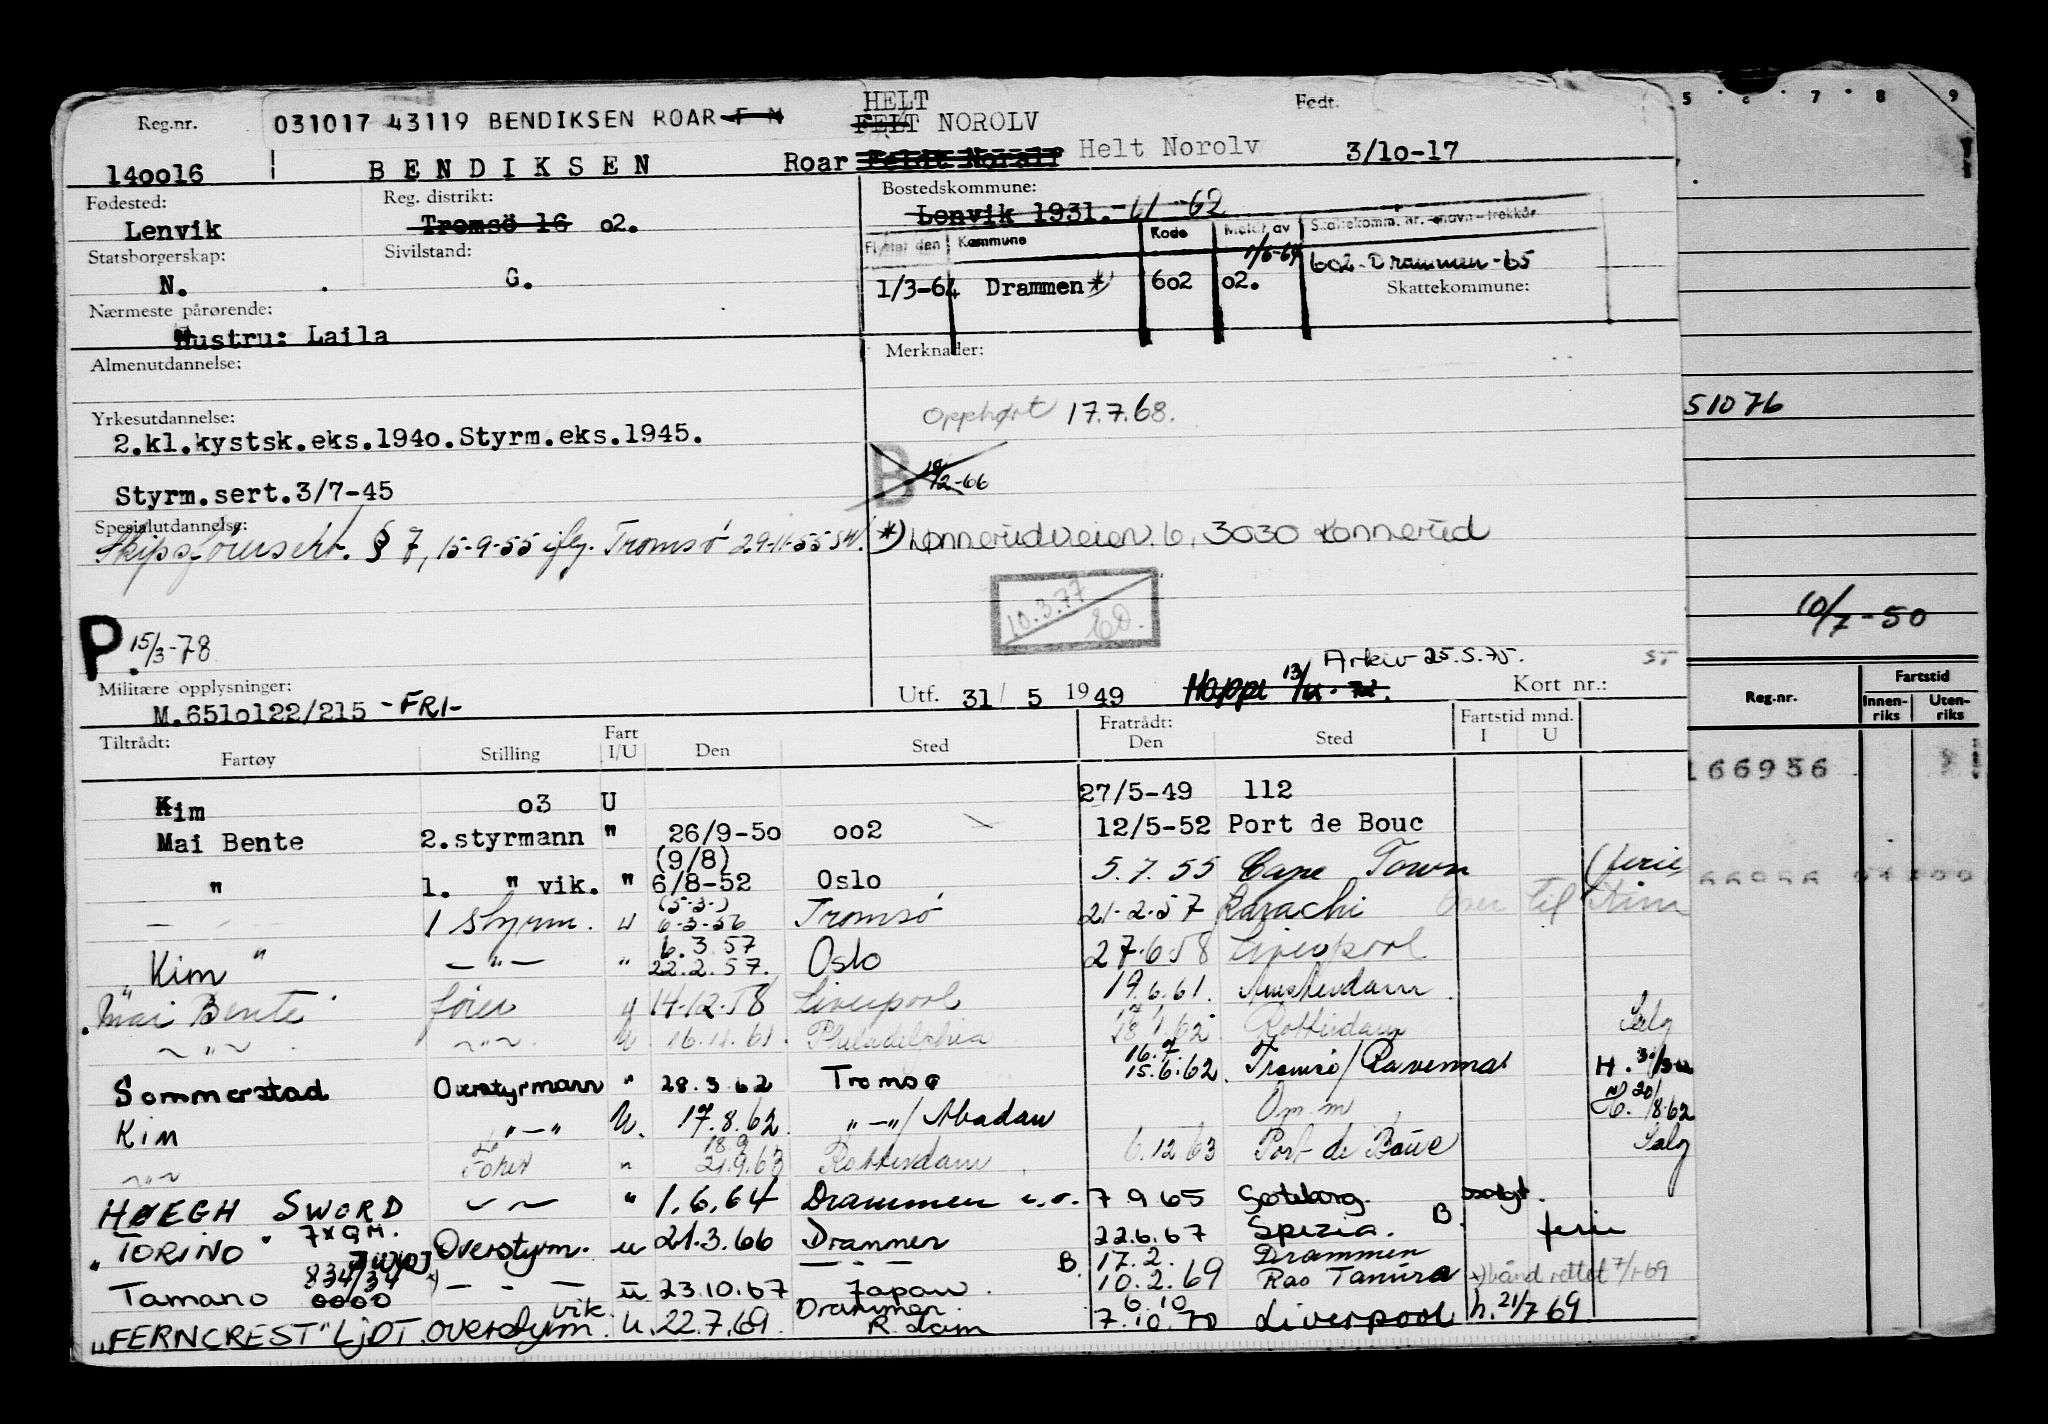 Reg.nr. 031017 43119 BENDIKSEN ROAR F M HELT Født.
FELT NOROLV
140016 BENDIKSEN Roar Feldt Noralf Helt Norolv 3/10-17
Fødested: Reg. distrikt: Bostedskommune:
Lenvik Tromsö 16 02. Lenvik 1931.-61-62
Statsborgerskap: Sivilstand: Flyttet den Kommune Kode Meldt av Skattekomm. nr. - navn - trekkår
1/6-64 602-Drammen-65
N. G. 1/3-64 Drammen *) 602 02. Skattekommune:
Nærmeste pårørende:
Hustru: Laila
Almenutdannelse: Merknader:
Opphørt 17.7.68.
Yrkesutdannelse:
2.kl.kystsk.eks.1940.Styrm.eks.1945.
B 19/2-66
Styrm.sert.3/7-45
Spesialutdannelse:
Skipsførersert. § 7, 15-9-55 iflg. Tromsø 29-11-55 SW. *) Konnerudveien 6, 3030 Konnerud
10.3.77
P. 15/3-78
Arkiv 25.5.75. ST
Militære opplysninger: Utf. 31/5 1949 Kort nr.:
M.6510122/215 -FRI-
Tiltrådt: Fart Fratrådt: Fartstid mnd.
Fartøy Stilling I/U Den Sted Den Sted I U
Kim 03 U 27/5-49 112
Mai Bente 2.styrmann " 26/9-50 002 12/5-52 Port de Bouc
(9/8)
" 1. " vik. " 6/8-52 Oslo 5.7.55 Cape Town (ferie
(5-3-)
— " 1 styrm. u 6-3-56 Tromsø 21-2-57 Karachi Over til Kim
6.3.57
" Kim " —"— " 22.2.57. Oslo 27.6.58 Liverpool
" Mai Bente fører u 14.12.58 Liverpool 19.6.61. Amsterdam
~"~ ~"~ U 16.11.61. Philadelphia 18.1.62 Rotterdam Salg
16.7
Sommerstad Overstyrmann " 28.3.62 Tromsø 15.6.62. Tromsø/Ravenna
Kim "—" U. 17.8.62 "—"/Abadan Om.m H. 20/8-62
18.9
~"~ Fører " 21.9.63 Rotterdam 6.12.63 Port de Bouc Salg
HØEGH SWORD ~~ " 1.6.64 Drammen 7.9.65 Gøteborg. solgt.
" TORINO " 7XGM. Overstyrm. u 21.3.66 Drammen 22.6.67 Spezia. B. ferie
JWXJ B. 17.2. Drammen
Tamano 834/34 *) — - — u 23.10.67 Japan 10.2.69 Ras Tanura *) bånd rettet 7/1-69
0000 vik. Drammen. 6.10
"FERNCREST" LJDT. overstyrm. U. 22.7.69. R.dam 7.10.70 Liverpool h. 21/7 69
5 6 7 8 9
51076
10/7-50
Reg.nr. Fartstid
Innen-riks Uten-riks
166956